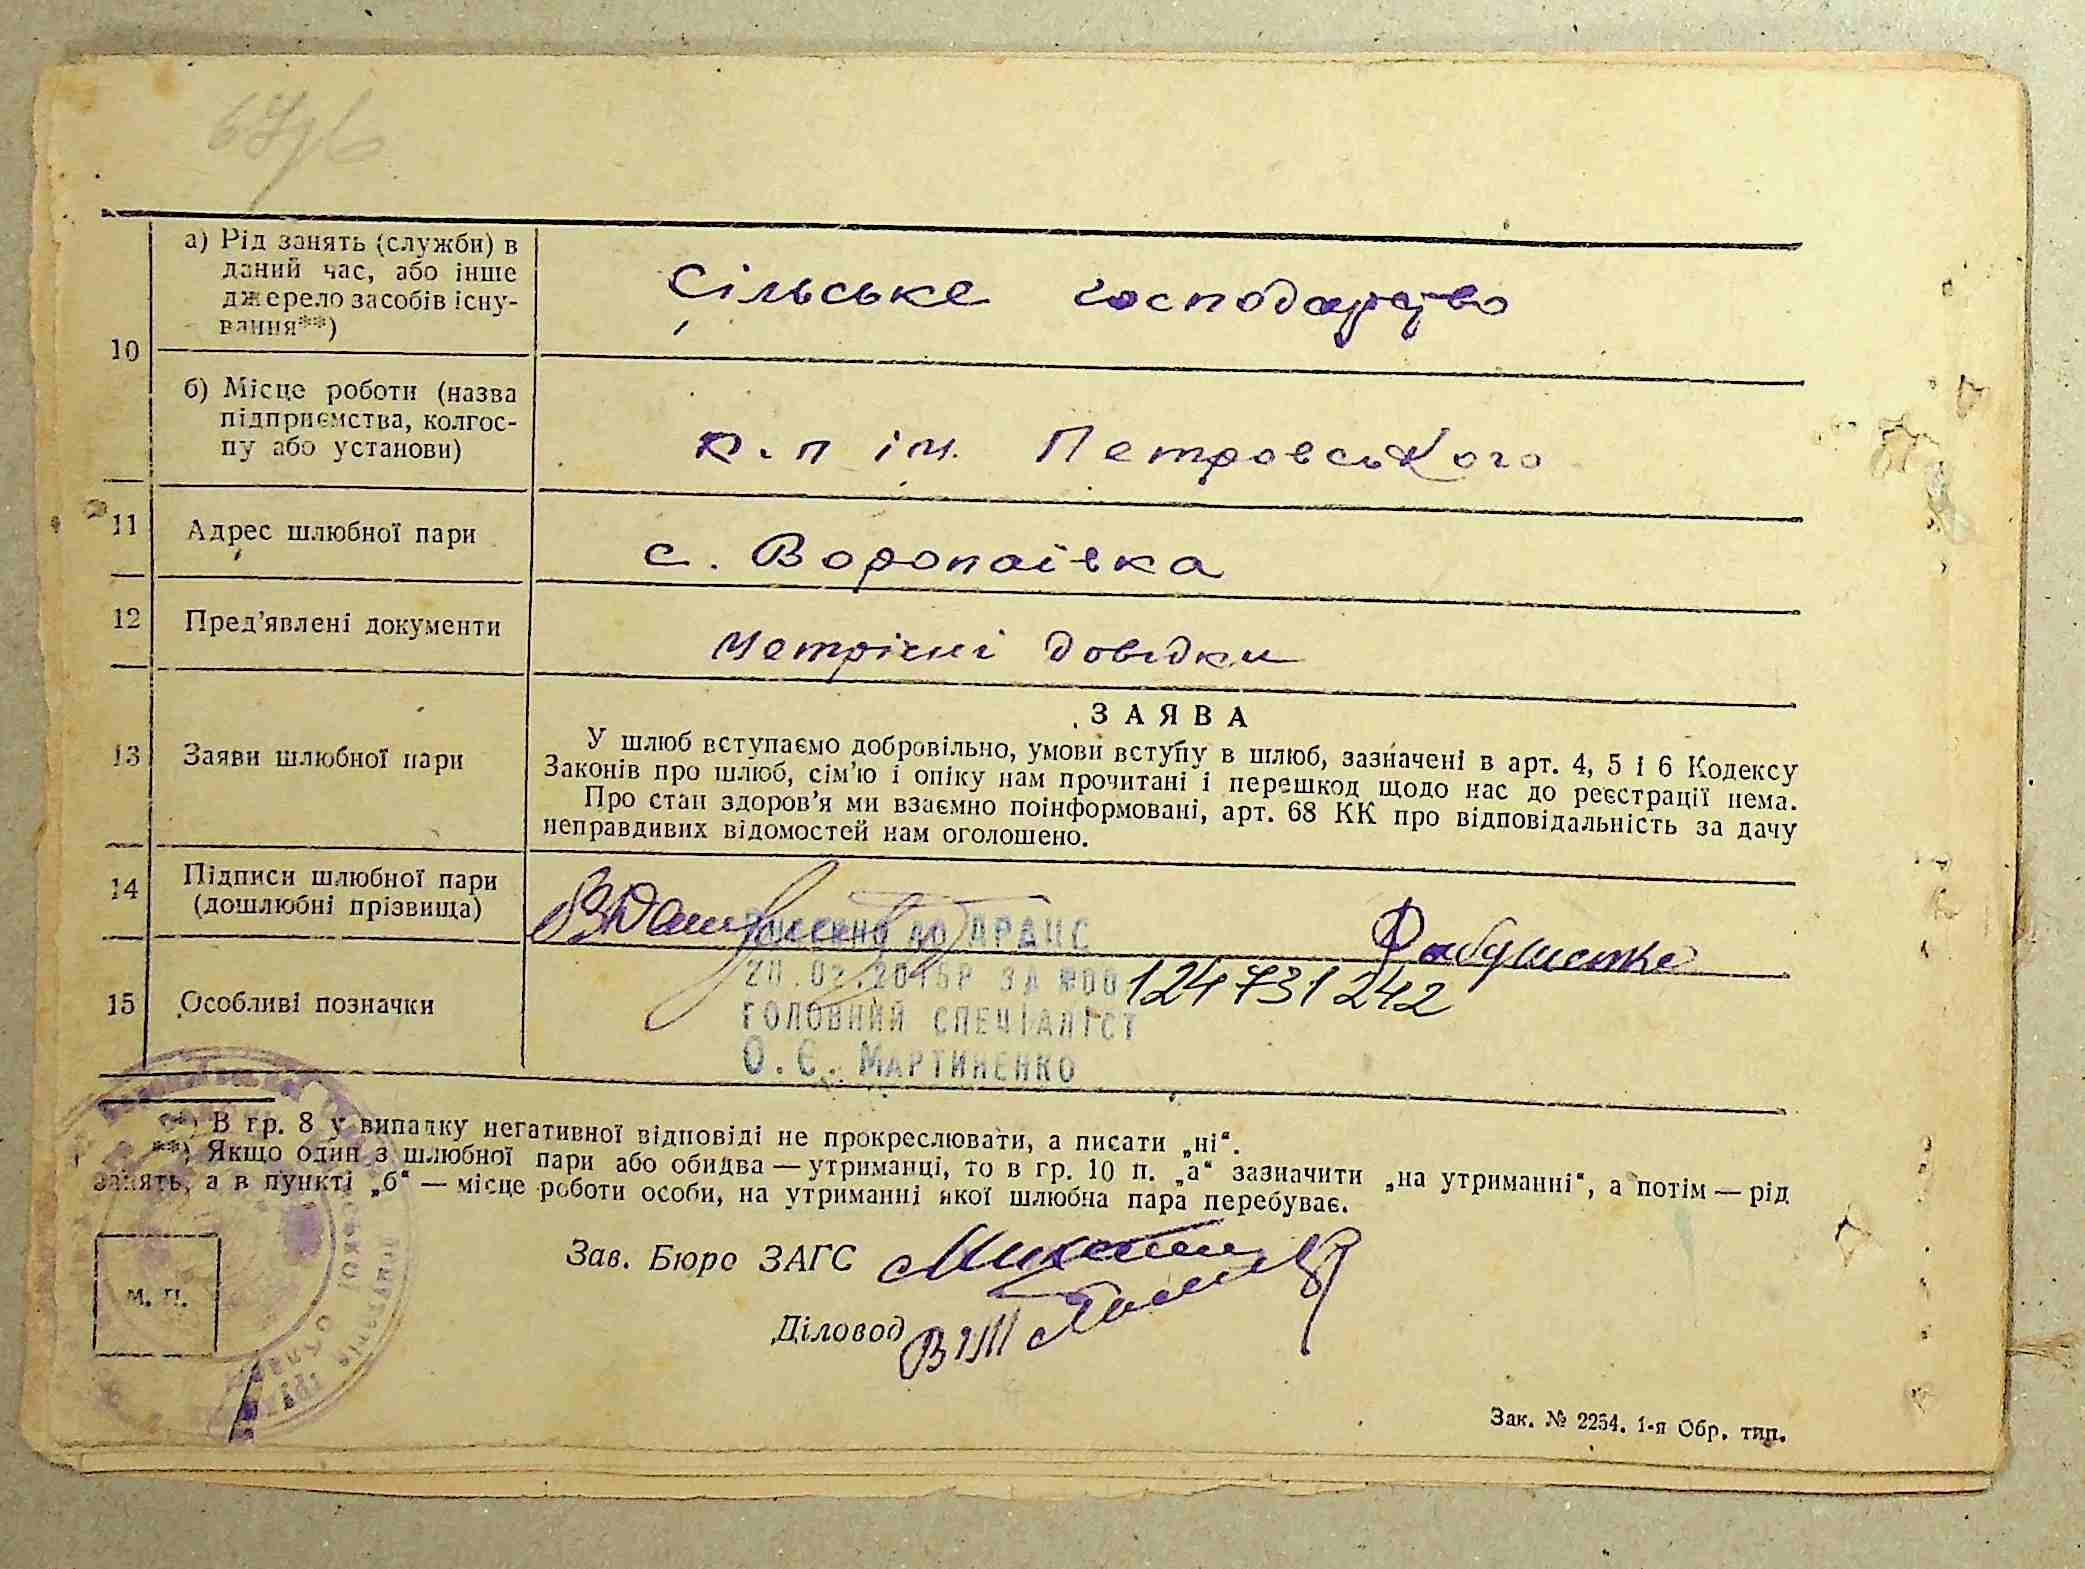 10
а) Рід занять (служби) в
даний час, або інше
джерело засобів існу-
вання**)
Сільське господарство
б) Місце роботи (назва
підприємства, колгос-
пу або установи)
к-п ім. Петровського
11 Адрес шлюбної пари
с. Воропаївка
12 Пред'явлені документи
метрічні довідки
13 Заяви шлюбної пари
ЗАЯВА
У шлюб вступаємо добровільно, умови вступу в шлюб, зазначені в арт. 4, 5 і 6 Кодексу
Законів про шлюб, сім'ю і опіку нам прочитані і перешкод щодо нас до реєстрації нема.
Про стан здоров'я ми взаємно поінформовані, арт. 68 КК про відповідальність за дачу
неправдивих відомостей нам оголошено.
14 Підписи шлюбної пари
(дошлюбні прізвища)
ВНЕСЕНО ДО ДРАЦС
ЗА №00 124731242
ГОЛОВНИЙ СПЕЦІАЛІСТ
О.Є. МАРТИНЕНКО
15 Особливі позначки
*) В гр. 8 у випадку негативної відповіді не прокреслювати, а писати „ні“.
**) Якщо один з шлюбної пари або обидва — утриманці, то в гр. 10 п. „а“ зазначити „на утриманні“, а потім — рід
занять, а в пункті „б“ — місце роботи особи, на утриманні якої шлюбна пара перебуває.
Зав. Бюро ЗАГС
Діловод
м. п.
Зак. № 2254. 1-я Обр. тип.